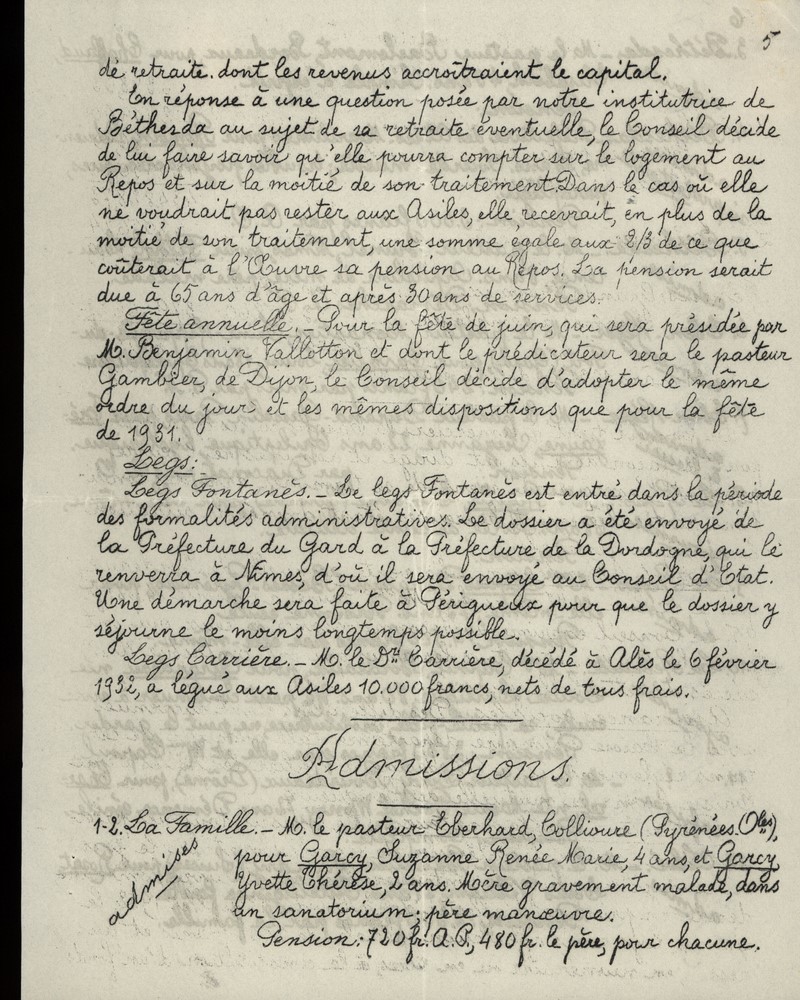 5
de retraite. dont les revenus accroîtraient le capital.
En réponse à une question posée par notre institutrice de
Béthesda au sujet de sa retraite éventuelle, le Conseil décide
de lui faire savoir qu'elle pourra compter sur le logement au
Repos et sur la moitié de son traitement. Dans le cas où elle
ne voudrait pas rester aux Asiles, elle recevrait, en plus de la
moitié de son traitement, une somme égale aux 2/3 de ce que
coûterait à l'Œuvre sa pension au Repos. La pension serait
due à 65 ans d'âge et après 30 ans de services.
Fête annuelle. - Pour la fête de juin, qui sera présidée par
M. Benjamin Vallotton et dont le prédicateur sera le pasteur
Gambier, de Dijon, le Conseil décide d'adopter le même
ordre du jour et les mêmes dispositions que pour la fête
de 1931.
Legs:
Legs Fontanès. - Le legs Fontanès est entré dans la période
des formalités administratives. Le dossier a été envoyé de
la Préfecture du Gard à la Préfecture de la Dordogne, qui le
renverra à Nîmes, d'où il sera envoyé au Conseil d'Etat.
Une démarche sera faite à Périgueux pour que le dossier y
séjourne le moins longtemps possible.
Legs Carrière. - M. le Dr Carrière, décédé à Alès le 6 février
1932, a légué aux Asiles 10.000 francs, nets de tous frais.
Admissions.
1-2. La Famille. - M. le pasteur Eberhard, Collioure (Pyrénées. Oles),
pour Garcy, Suzanne Renée Marie, 4 ans, et Garcy,
Yvette Thérèse, 2 ans. Mère gravement malade, dans
un sanatorium; père manœuvre.
Pension: 720 fr. A.P., 480 fr. le père, pour chacune.
admises